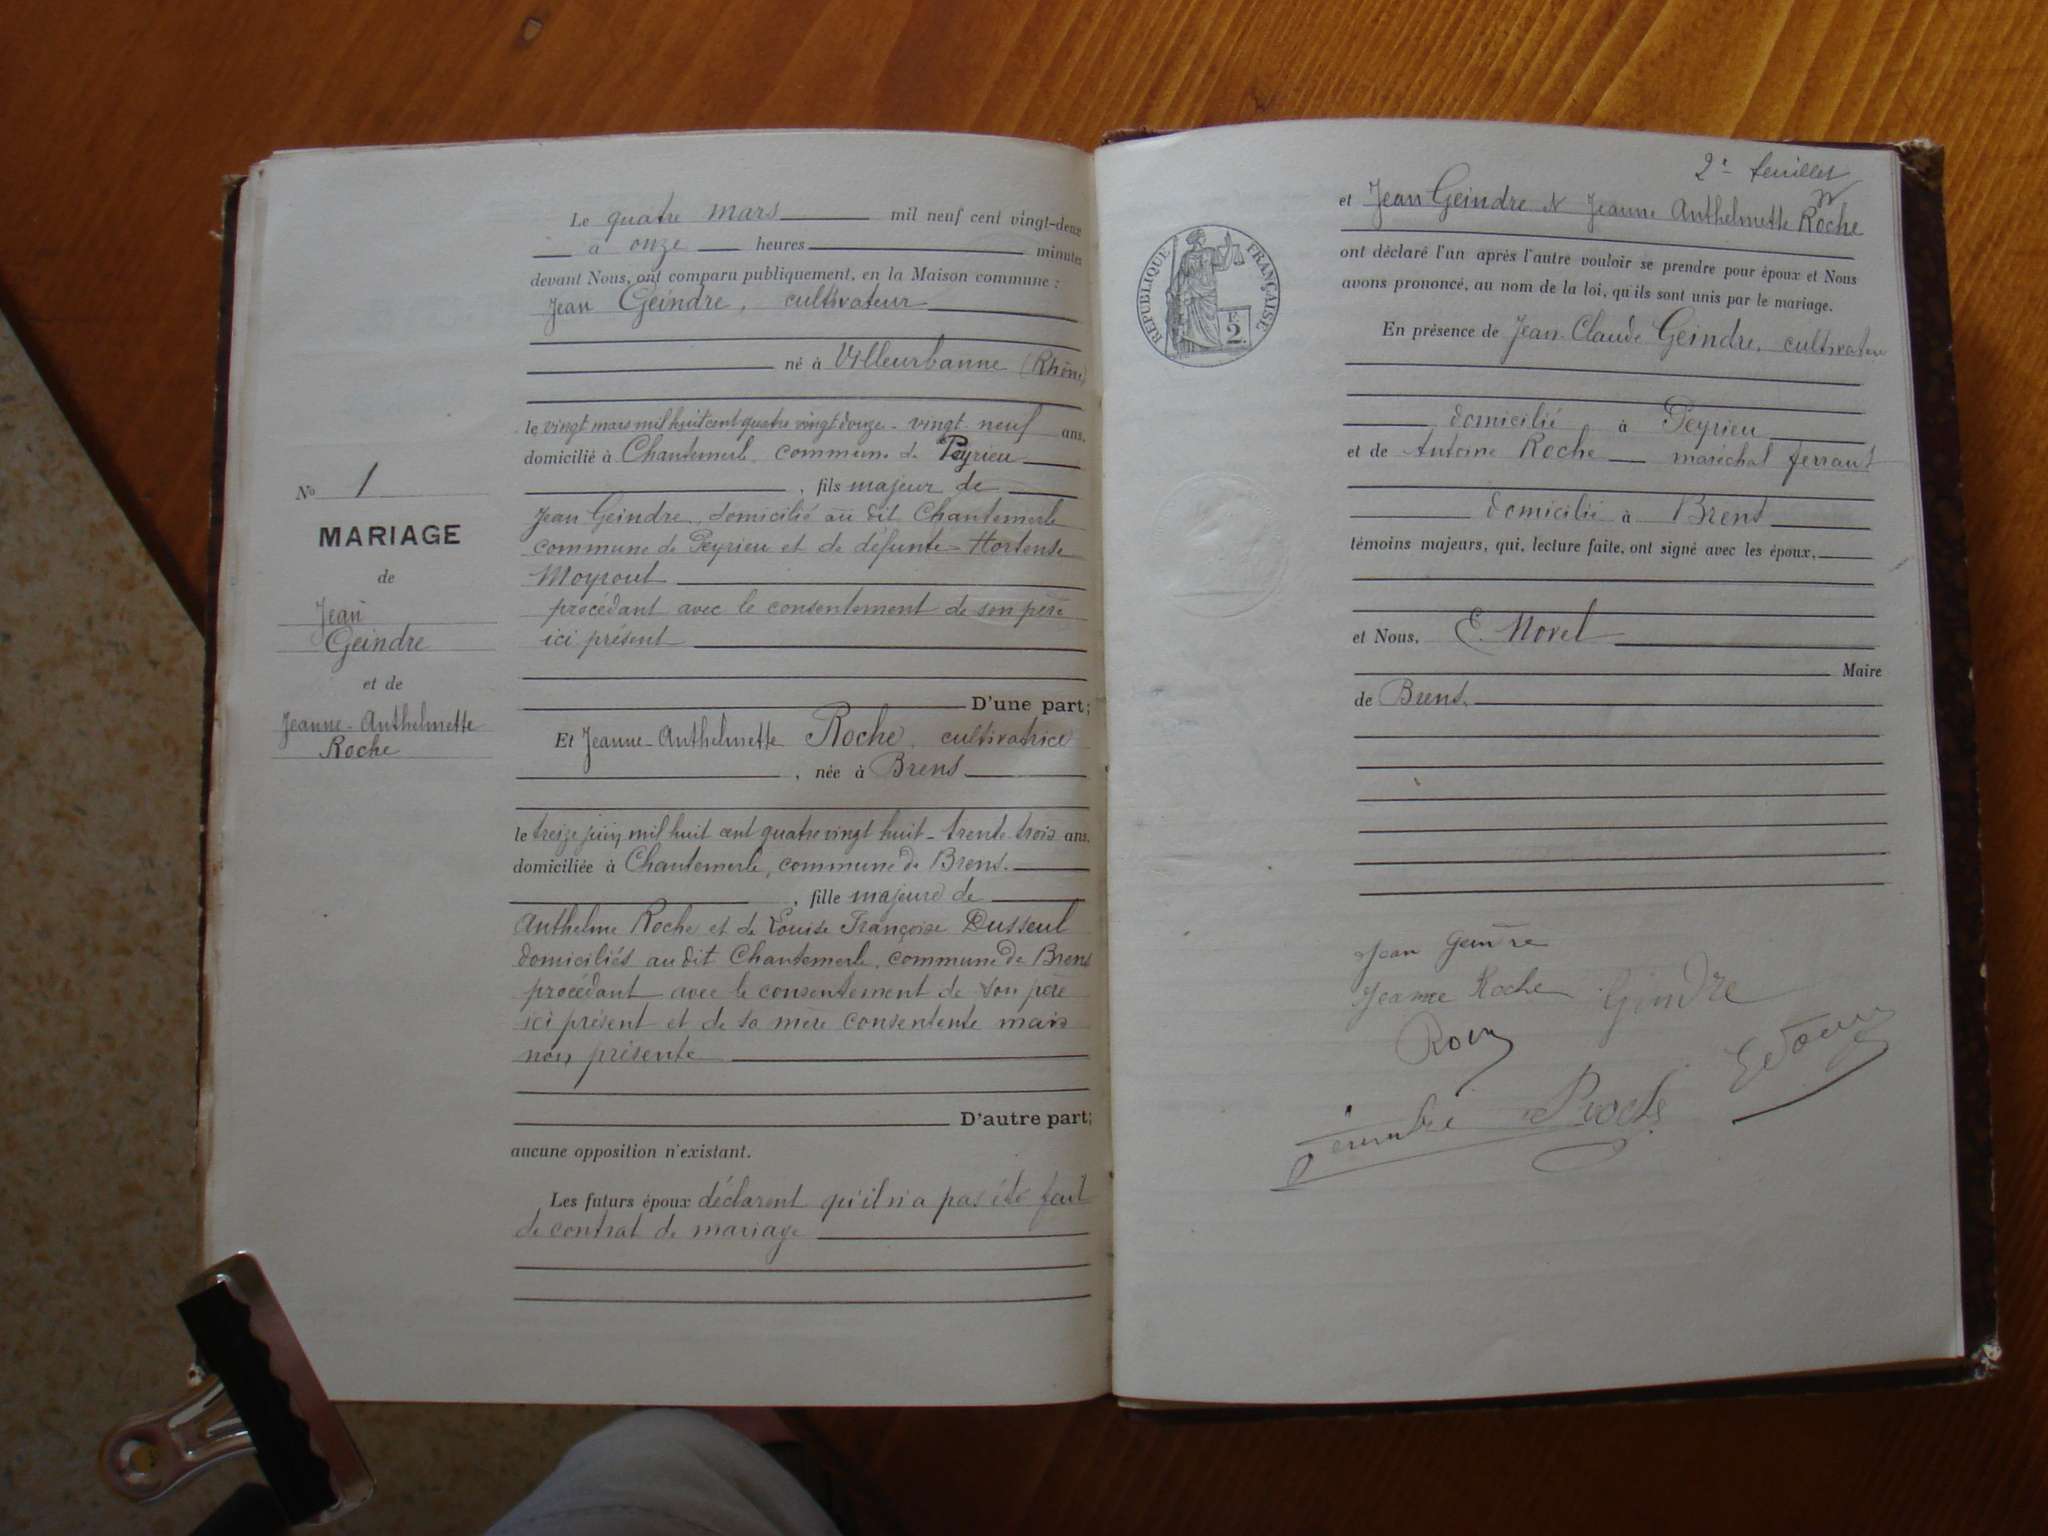 Le quatre mars mil neuf cent vingt-deux
à onze heures minutes
devant Nous, ont comparu publiquement, en la Maison commune :
Jean Geindre, cultivateur
né à Villeurbanne (Rhône)
le vingt mars mil huit cent quatre vingt douze - vingt neuf ans,
domicilié à Chantemerle commune de Peyrieu
, fils majeur de
Jean Geindre, domicilié au dit Chantemerle
commune de Peyrieu et de défunte Hortense
procédant avec le consentement de son père
ici présent
D'une part;
Et Jeanne-Anthelmette Roche, cultivatrice
, née à Brens
le treize juin mil huit cent quatre vingt huit - trente trois ans,
domiciliée à Chantemerle, commune de Brens.
, fille majeure de
Anthelme Roche et de Louise Françoise Dusseul
domiciliés au dit Chantemerle, commune de Brens
procédant avec le consentement de son père
ici présent et de sa mère consentente mais
non présente
D'autre part;
aucune opposition n'existant.
Les futurs époux déclarent qu'il n'a pas été fait
de contrat de mariage
No 1
MARIAGE
de
Jean
Geindre
et de
Jeanne-Anthelmette
Roche
2e feuillet
et Jean Geindre et Jeanne Anthelmette Roche
ont déclaré l'un après l'autre vouloir se prendre pour époux et Nous
avons prononcé, au nom de la loi, qu'ils sont unis par le mariage.
En présence de Jean-Claude Geindre, cultivateur
domicilié à Peyrieu
et de Antoine Roche maréchal ferrant
domicilié à Brens
témoins majeurs, qui, lecture faite, ont signé avec les époux,
et Nous, E. Morel
Maire
de Brens.
RÉPUBLIQUE FRANÇAISE
F.
2.
Jean Geindre
Jeanne Roche Gindre
Roche